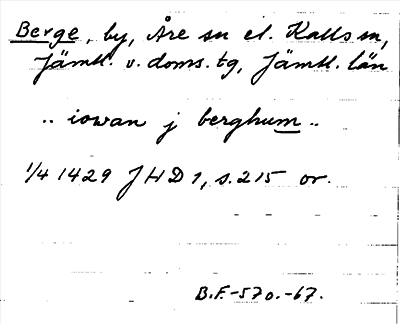 Berge, by, Åre sn el. Kalls sn,
Jämtl. v. doms. tg, Jämtl. län
.. iowan j berghum ..
1/4 1429 JHD 1, s. 215 or.
B.F.-570.-67.